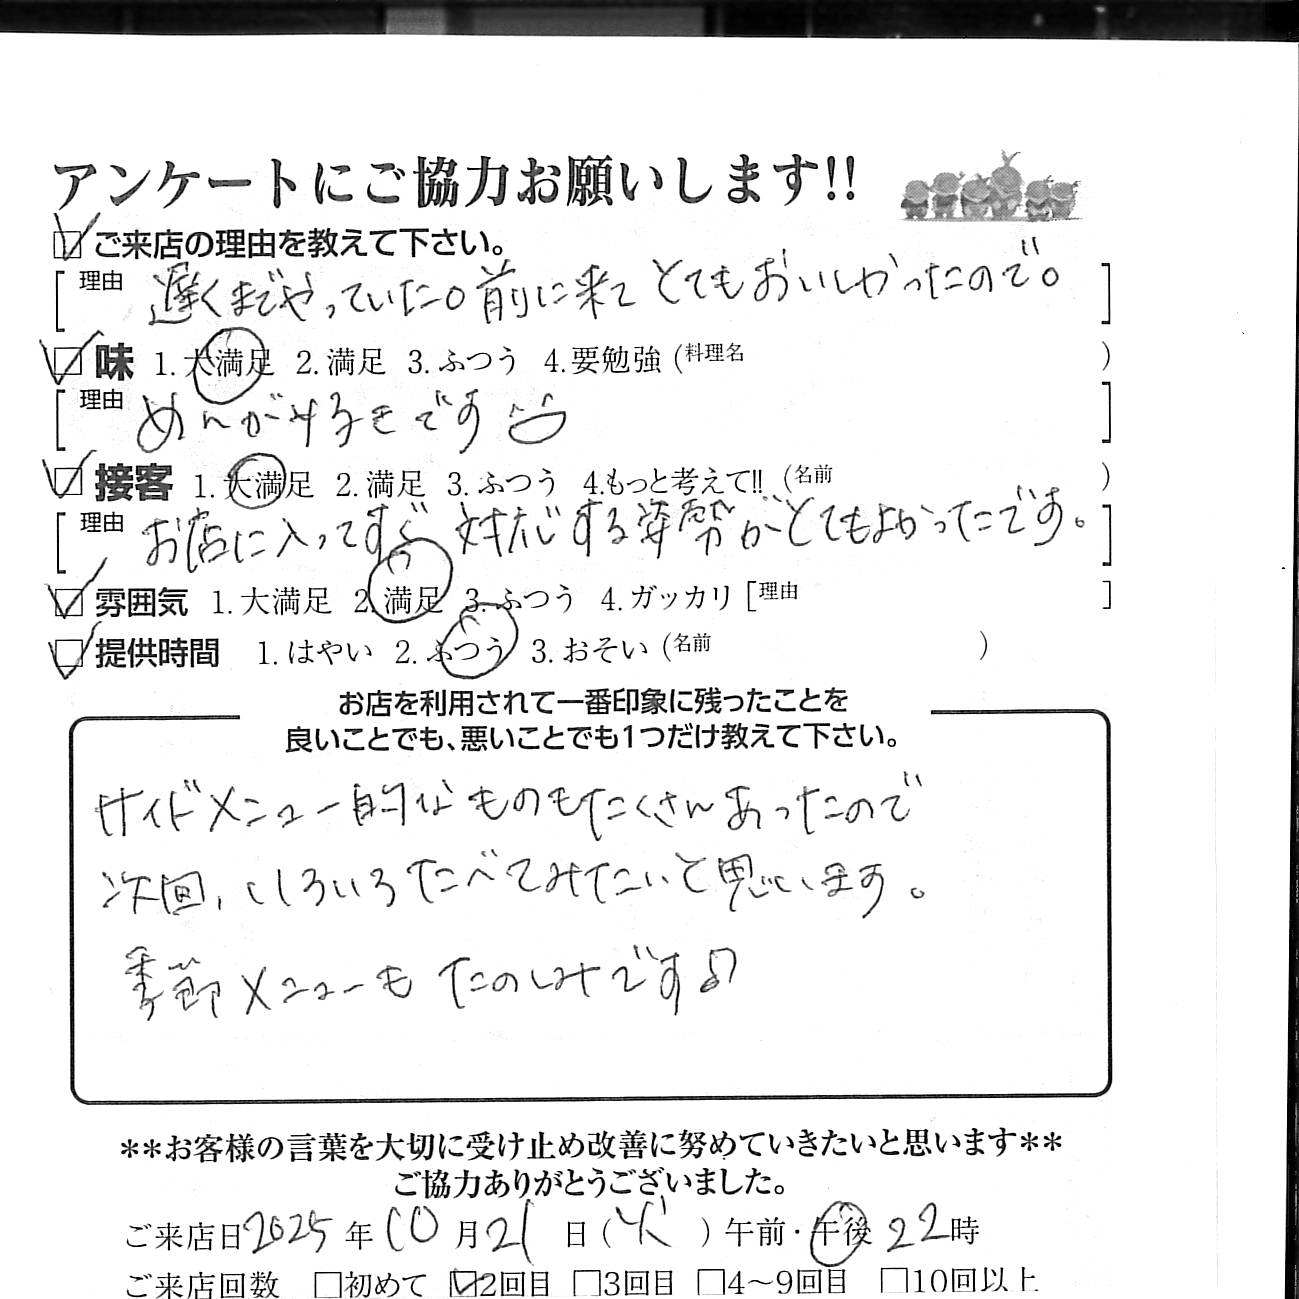 アンケートにご協力お願いします!!
ご来店の理由を教えて下さい。
理由 遅くまでやっていた。前に来て とてもおいしかったので。
味 1.大満足 2.満足 3.ふつう 4.要勉強 (料理名 )
理由 めんがすきです
接客 1.大満足 2.満足 3.ふつう 4.もっと考えて!! (名前 )
理由 お店に入ってすぐ 対応する姿勢がとてもよかったです。
雰囲気 1.大満足 2.満足 3.ふつう 4.ガッカリ [理由 ]
提供時間 1.はやい 2.ふつう 3.おそい (名前 )
お店を利用されて一番印象に残ったことを
良いことでも、悪いことでも1つだけ教えて下さい。
サイドメニュー的なものもたくさんあったので
次回、いろいろたべてみたいと思います。
季節メニューも たのしみです♪
**お客様の言葉を大切に受け止め改善に努めていきたいと思います**
ご協力ありがとうございました。
ご来店日 2025 年 10 月 21 日 (火) 午前・午後 22時
ご来店回数 □初めて ☑2回目 □3回目 □4～9回目 □10回以上